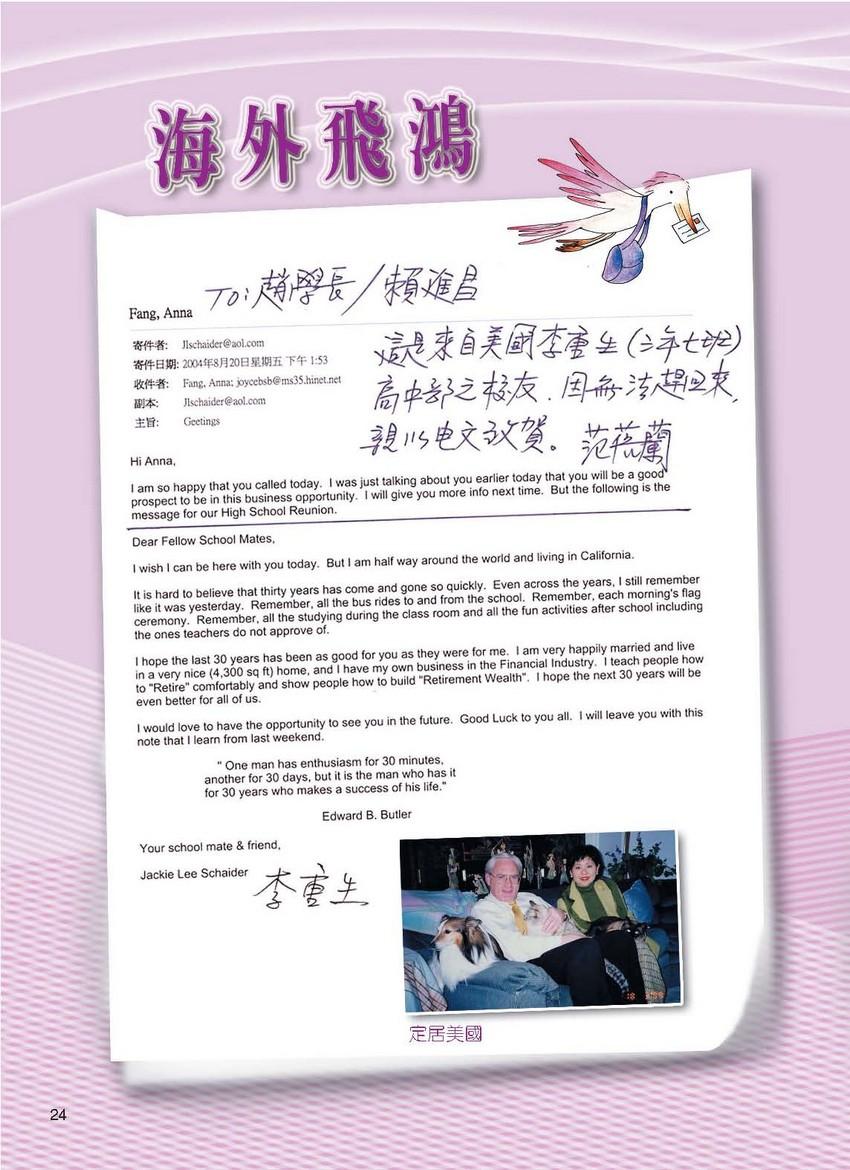 海外飛鴻
TO: 趙學長/賴進昌
Fang, Anna
寄件者: Jlschaider@aol.com
寄件日期: 2004年8月20日星期五 下午 1:53
收件者: Fang, Anna; joycebsb@ms35.hinet.net
副本: Jlschaider@aol.com
主旨: Geetings
這是來自美國李重生(三年七班)
高中部之校友,因無法趕回來,
親以电文致賀。范蓓蘭
Hi Anna,
I am so happy that you called today. I was just talking about you earlier today that you will be a good
prospect to be in this business opportunity. I will give you more info next time. But the following is the
message for our High School Reunion.
Dear Fellow School Mates,
I wish I can be here with you today. But I am half way around the world and living in California.
It is hard to believe that thirty years has come and gone so quickly. Even across the years, I still remember
like it was yesterday. Remember, all the bus rides to and from the school. Remember, each morning's flag
ceremony. Remember, all the studying during the class room and all the fun activities after school including
the ones teachers do not approve of.
I hope the last 30 years has been as good for you as they were for me. I am very happily married and live
in a very nice (4,300 sq ft) home, and I have my own business in the Financial Industry. I teach people how
to "Retire" comfortably and show people how to build "Retirement Wealth". I hope the next 30 years will be
even better for all of us.
I would love to have the opportunity to see you in the future. Good Luck to you all. I will leave you with this
note that I learn from last weekend.
" One man has enthusiasm for 30 minutes,
another for 30 days, but it is the man who has it
for 30 years who makes a success of his life."
Edward B. Butler
Your school mate & friend,
Jackie Lee Schaider
李重生
定居美國
24